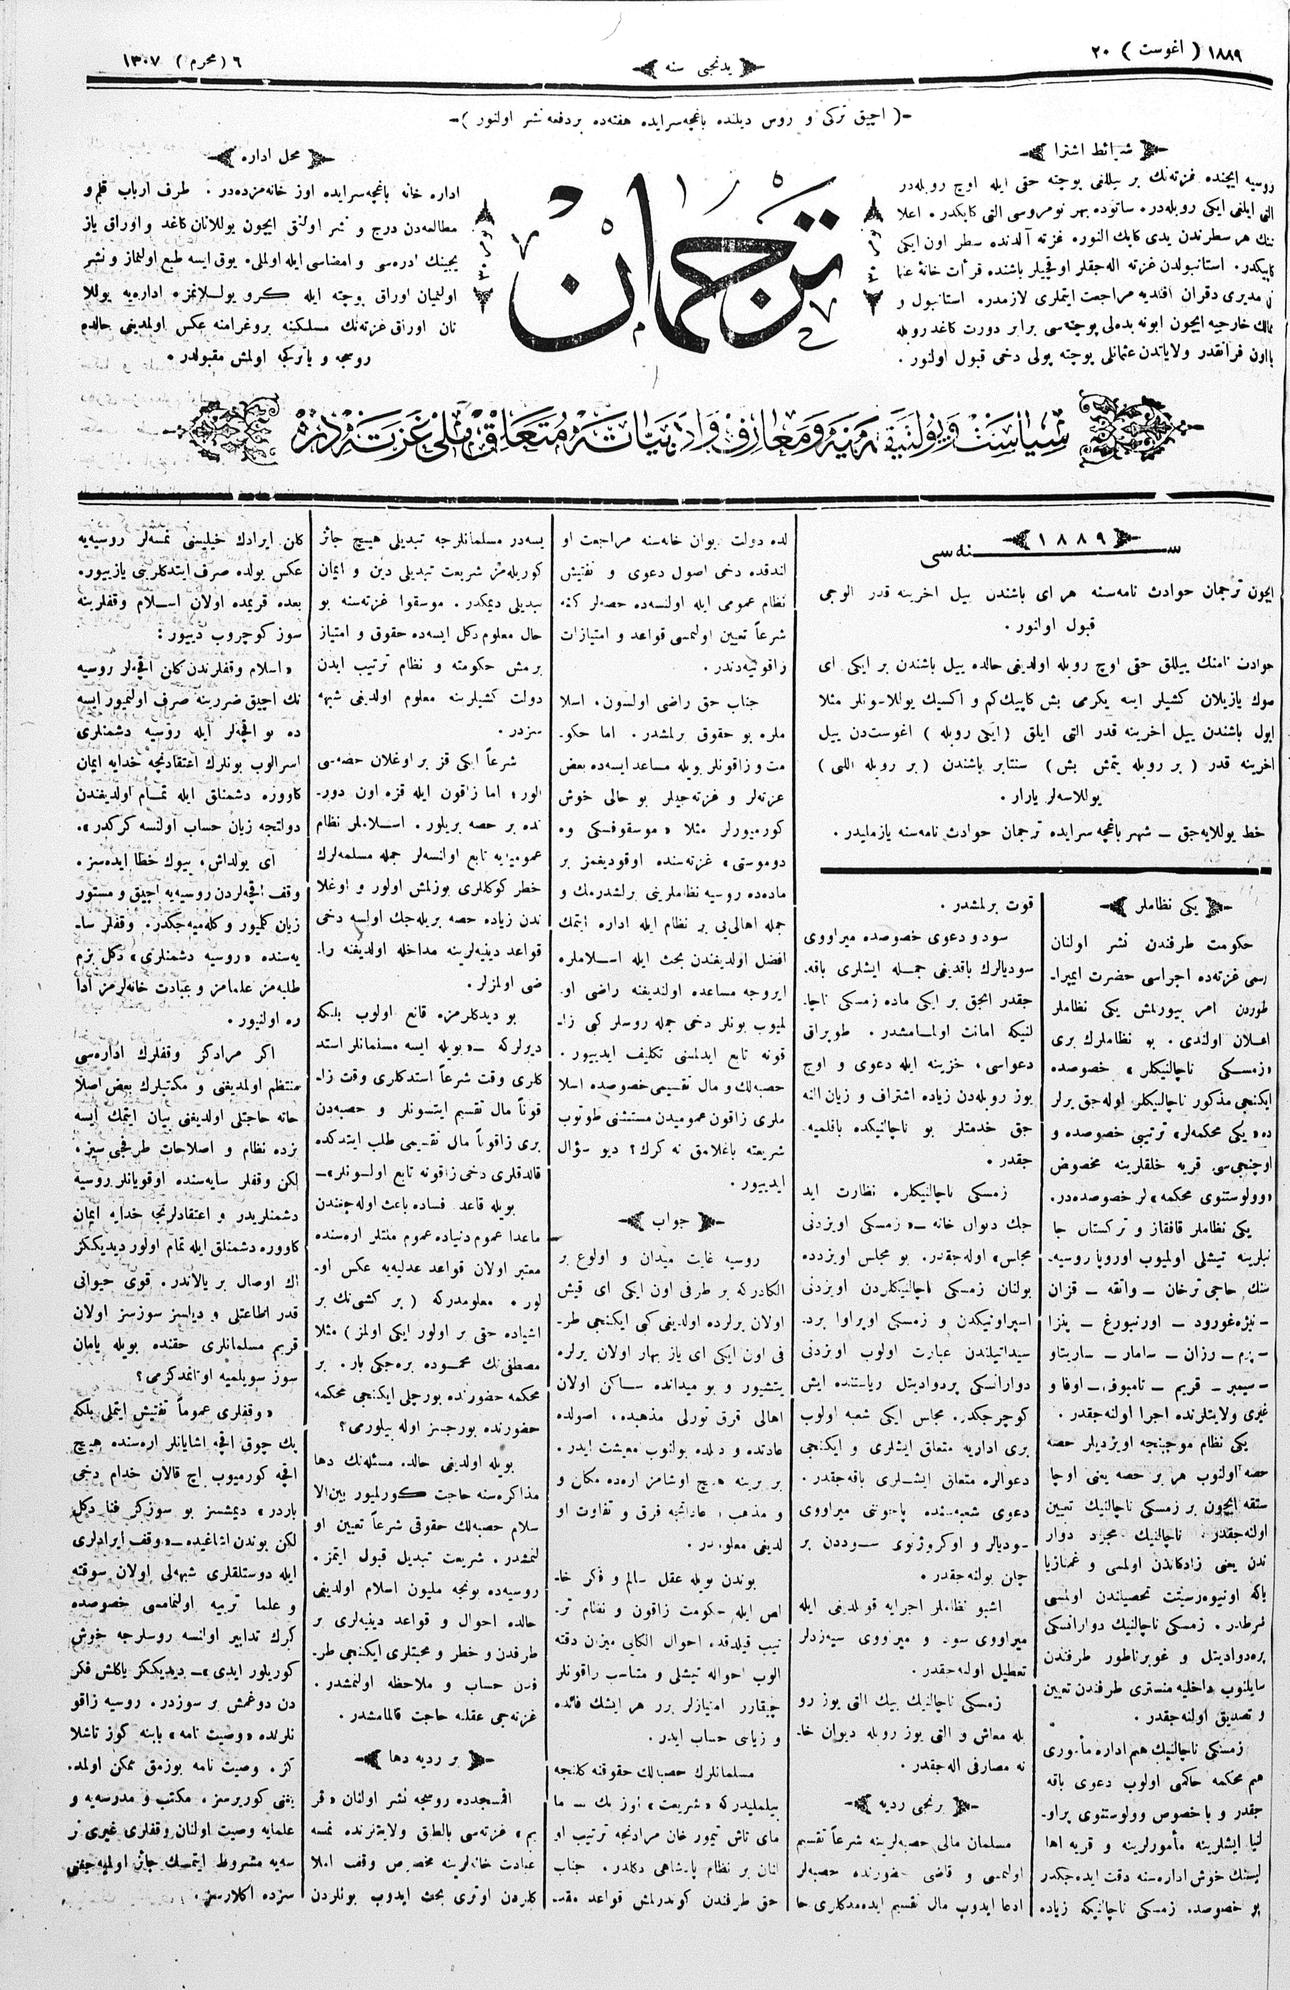 ١٨٨٩ ( اغوست ) ٢٠
يدنجى سنه
٦ ( محرم ) ١٣٠٧
-( اچيق تركى و روس ديلنده باغچه‌سرايده هفته‌ده بر دفعه نشر اولنور )-
شرائط اشترا
روسيه ايچنده غزته‌نك بر ييللغى پوچته حقى ايله اوچ روبله‌در
التى ايلغى ايكى روبله‌در. ساتوده بهر نومروسى التى كاپكدر. اعلا
ننك هر سطرندن يدى كاپك النور. غزته آلدنده سطر اون ايكى
كاپيكدر. استانبولدن غزته اله‌جقلر باشنده قرأت خانهٔ عثما
نى مديرى افنديه مراجعت ايتملرى لازمدر. استانبول و
ممالك خارجيه ايچون ابونه بدلى پوچته‌سى برابر دورت كاغد روبله
يا اون فرانقدر ولاياتدن عثمانلى پوچته پولى دخى قبول اولنور.
ترجمان
محل اداره
اداره خانه باغچه‌سرايده اوز خانه‌مزده‌در. طرف ارباب قلم و
مطالعه‌دن درج و نشر اولنق ايچون يوللانان كاغد و اوراق ياز
يجينك ادره‌سى و امضاسى ايله اولملى. يوق ايسه طبع اولنماز و نشر
اولنميان اوراق پوچته ايله كرو يوللانمز. اداره‌يه يوللا
نان اوراق غزته‌نك مسلكينه پروغرامنه عكس اولمديغى حالده
روسجه و يا تركجه اولمش مقبولدر.
سياست و معارف و ادبياته متعلق ملى غزته‌در
١٨٨٩
سنه‌سى
ايچون ترجمان حوادث نامه‌سنه هر اى باشندن ييل اخرينه قدر
قبول اولنور.
حوادث نامه‌نك ييللق حقى اوچ روبله اولديغى حالده ييل باشندن بر ايكى اى
صوك يازيلان كشيلر ايسه يكرمى بش كاپيك كم و اكسيك يوللاسونلر مثلا
ايول باشندن ييل اخرينه قدر التى ايلق ( ايكى روبله ) اغوست‌دن ييل
اخرينه قدر ( بر روبله يتمش بش ) سنتابر باشندن ( بر روبله اللى )
يوللاسه‌لر يارار.
خط يوللايه‌جق ــ شهر باغچه سرايده ترجمان حوادث نامه‌سنه يازمليدر.
يكى نظاملر
حكومت طرفندن نشر اولنان
رسمى غزته‌ده اجراسى حضرت ايمپرا-
طوردن امر بيورلمش يكى نظاملر
اعلان اولندى. بو نظاملرك برى
«زمسكى ناچالنيكلر» خصوصده
ايكنجى مذكور ناچالنيكلر اوله‌جق يرلر
ده «يكى محكمه‌لر» ترتيبى خصوصده و
اوچنجى‌سى قريه خلقلرينه مخصوص
«وولوستنوى محكمه» لر خصوصده‌در.
يكى نظاملر قافقاز و تركستان جا
نبلرينه تيشلى اولميوب اوروپا روسيه-
سنك حاجى ترخان ــ واتقه ــ قزان
ــ نيژه‌غورود ــ اورنبورغ ــ پنزا
ــ پرم ــ رزان ــ سامار ــ ساريتاو
ــ سيمبر ــ قريم ــ تامبوف ــ اوفا و
غيرى ولايتلرنده اجرا اولنه‌جقدر.
يكى نظام موجبنجه اويزديلر حصه
حصه اولنوب هر بر حصه يعنى اوچا
ستقه ايچون بر زمسكى ناچالنيك تعيين
اولنه‌جقدر. ناچالنيك مجرد دوار
ندن يعنى زادكاندن اولمسى و غمنازيا
ياكه اونيوه‌رسيتت تحصيلندن اولمسى
شرطدر. زمسكى ناچالنيك دوارانسكى
پره‌دواديتل و غوبرناطور طرفندن
سايلنوب داخليه منسترى طرفندن تعيين
و تصديق اولنه‌جقدر.
زمسكى ناچالنيك هم اداره مأمورى
هم محكمه حاكمى اولوب دعوى باقه
جقدر و باخصوص وولوستنوى پراو-
لنيا ايشلرينه مأمورلرينه و قريه اها
ليسنك خوش اداره‌سنه دقت ايده‌جكدر
بو خصوصده. زمسكى ناچالنيكه زياده
قوت برلمشدر.
سود و دعوى خصوصده ميراووى
سوديالرك باقديغى جمله ايشلرى باقه.
جقدر انجق بر ايكى ماده زمسكى ناچا
لنيكه امانت اولنمامشدر. طوپراق
دعواسى، خزينه ايله دعوى و اوچ
يوز روبله‌دن زياده اشتراف و زيان النه
جق خدمتلر بو ناچالنيكده باقلميه
جقدر.
زمسكى ناچالنيكلره نظارت ايد
جك ديوان خانه ــ «زمسكى اويزدنى
مجلس» اوله‌جقدر. بو مجلس اويزدده
بولنان زمسكى ناچالنيكلردن اويزدنى
اسپراونيكدن و زمسكى اوپراوا پرد.
سيداتيلندن عبارت اولوب اويزدنى
دوارانسكى پردواديتل رياستنده ايش
كوچرجكدر. مجلس ايكى شعبه اولوب
برى اداريه متعلق ايشلرى و ايكنجى
دعوالره متعلق ايشلرى باقه‌جقدر.
دعوى شعبه‌سنده پاچوتنى ميراووى
سوديالر و اوكروژنوى سوددن بر
چلن بولنه‌جقدر.
اشبو نظاملر اجرايه قولديغى ايله
ميراووى سود و ميراووى سيه‌زدلر
تعطيل اوله‌جقدر.
زمسكى ناچالنيك بيك التى يوز رو
بله معاش و التى يوز روبله ديوان خا-
نه مصارفى اله‌جقدر.
برنجى رديه
مسلمان مالى حصه‌لرينه شرعاً تقسيم
اولنمسى و قاضى حضورنده حصه‌لر
ادعا ايدوب مال تقسيم ايده‌مدكلرى حا
لده دولت ديوان خانه‌سنه مراجعت او
لندقده دخى اصول دعوى و تفتيش
نظام عمومى ايله اولنسه‌ده حصه‌لر كنه
شرعاً تعيين اولنمسى قواعد و امتيازات
زاقونيه‌دندر.
جناب حق راضى اولسون. اسلا
ملره بو حقوق برلمشدر. اما حكو-
مت و زاقونلر بويله مساعد ايسه‌ده بعض
غزته‌لر و غزته‌جيلر بو حالى خوش
كورميورلر مثلا «موسقوفسكى وه
دوموستى» غزته‌سنده اوقوديغمز بر
ماده‌ده روسيه نظاملرينى برلشدرمك و
جمله اهالى‌يى بر نظام ايله اداره ايتمك
افضل اولديغندن بحث ايله اسلاملره
ايروجه مساعده اولنديغنه راضى او
لميوب بونلر دخى جمله روسلر كبى زا-
قونه تابع ايدلمسنى تكليف ايديور.
حصه‌لك و مال تقسيمى خصوصده اسلا
ملرى زاقون عموميدن مستثنى طوتوب
شريعته باغلامق نه كرك؟ ديو سؤال
ايديور.
جواب
روسيه غايت ميدان و اولوغ بر
الكادركه بر طرفى اون ايكى اى قيش
اولان يرلرده اولديغى كبى ايكنجى طر-
فى اون ايكى اى ياز بهار اولان يرلره
يتشيور و بو ميدانده ساكن اولان
اهالى قرق تورلى مذهبده، اصولده
عادتده و دلده بولنوب معيشت ايدر.
بر برينه هيچ اوشامز اره‌ده مكان و
و مذهب، عادتجه فرق و تفاوت او
لديغى معلومدر.
بوندن بويله عقل سالم و فكر خا-
لص ايله حكومت زاقون و نظام تر-
تيب قيلدقده احوال الكايى ميزن دقته
الوب احواله تيشلى و مناسب زاقونلر
چيقارر امتيازلر برر هر ايشك فائده
و زياسى حساب ايدر.
مسلمانلرك حصه‌لك حقوقنه كلنجه
بيلمليدركه «شريعت» اوزبك ــ ما
ماى تاش تيمور خان مرادنجه ترتيب او
لنان بر نظام پادشاهى دكلدر. جناب
حق طرفندن كوندرلمش قواعد مقد-
سه‌در مسلمانلرجه تبديلى هيچ جائز
كوريله‌مز شريعت تبديلى دين و ايمان
تبديلى ديمكدر. موسقوا غزته‌سنه بو
حال معلوم دكل ايسه‌ده حقوق و امتياز
برمش حكومته و نظام ترتيب ايدن
دولت كشيلرينه معلوم اولديغى شبهه
سزدر.
شرعاً ايكى قز بر اوغلان حصه‌سى
الور؛ اما زاقون ايله قزه اون دور-
تده بر حصه بريلور. اسلاملر نظام
عموميه‌يه تابع اولنسه‌لر جمله مسلمه‌لرك
خطر كوكللرى بوزلمش اولور و اوغلا
ندن زياده حصه بريله‌جك اولسه دخى
قواعد دينيه‌لرينه مداخله اولديغنه را.
ضى اولمزلر.
بو ديدكلرمزه قانع اولوب بلكه
ديرلركه ــ «بويله ايسه مسلمانلر استد
كلرى وقت شرعاً استدكلرى وقت زا-
قوناً مال تقسيم ايتسونلر و حصه‌دن
برى زاقوناً مال تقسيمى طلب ايتدكده
قالدقلرى دخى زاقونه تابع اولسونلر» ــ
بويله قاعده فساده باعث اوله‌جغندن
ماعدا عموم دنياده عموم ملتلر اره‌سنده
معتبر اولان قواعد عدليه‌يه عكس او-
لور. معلومدركه ( بر كشى‌نك بر
اشياده حقى بر اولور ايكى اولمز ) مثلا
مصطفى‌نك محموده بره‌جكى بار. بر
محكمه حضورنده بورچلى ايكنجى محكمه
حضورنده بورجسز اوله بيلورمى؟
بويله اولديغى حالده. مسئله‌نك دها
مذاكره‌سنه حاجت كورلميور بين‌الا
سلام حصه‌لك حقوقى شرعاً تعيين او
لنمشدر. شريعت تبديل قبول ايتمز.
روسيه‌ده بونجه مليون اسلام اولديغى
حالده احوال و قواعد دينيه‌لرى بر
طرفدن و خطر و محبتلرى ايكنجى طر-
فدن حساب و ملاحظه اولنمشدر.
غزته‌جى عقلنه حاجت قالمامشدر.
بر رديه دها
اقمسجدده روسجه نشر اولنان «قر
يم» غزته‌سى بالطق ولايتلرنده نمسه
عبادت خانه‌لرينه مخصوص وقف املا
كلردن اوترى بحث ايدوب بونلردن
كلن ايرادك خيليسنى نمسه‌لر روسيه‌يه
عكس يولده صرف ايتدكلرينى يازييور.
بعده قريمده اولان اسلام وقفلرينه
سوز كوچروب دييور:
«اسلام وقفلرندن كلن اقچه‌لر روسيه
نك اچيق ضررينه صرف اولنميور ايسه
ده بو اقچه‌لر ايله روسيه دشمنلرى
اسرالوب بونلرك اعتقادنجه خدايه ايمان
كاووره دشمنلق ايله تمام اولديغندن
دولتجه زيان حساب اولنسه كركدر».
اى يولداش، بيوك خطا ايده‌سز.
وقف اقچه‌لردن روسيه‌يه اچيق و مستور
زيان كلميور و كله‌ميه‌جكدر. وقفلر سا-
يه‌سنده «روسيه دشمنلرى» دكل بزم
طلبه‌مز علمامز و عبادت خانه‌لرمز ادا
ره اولنيور.
اكر مرادكز وقفلرك اداره‌سى
منتظم اولمديغنى و مكتبلرك بعض اصلا
حاته حاجتلى اولديغى بيان ايتمك ايسه
بزده نظام و اصلاحات طرفجى سيز.
لكن وقفلر سايه‌سنده اوقويانلر روسيه
دشمنلريدر و اعتقادلرنجه خدايه ايمان
كاووره دشمنلق ايله تمام اولور ديديككز
اك اوصال بر يالاندر. قوى حيوانى
قدر اطاعتلى و ديلسز سوزسز اولان
قريم مسلمانلرى حقنده بويله يامان
سوز سويلميه اوتانمدكزمى؟
«وقفلرى عموماً تفتيش ايتملى بلكه
پك چوق اقچه اشايانلر اره‌سنده هيچ
اقچه كورميوب اچ قالان خدام دخى
باردر» ديمشسز بو سوزكز فنا دكل
لكن بوندن اشاغيده ــ «وقف ايرادلرى
ايله دوستلقلرى شبهه‌لى اولان سوفته
و علما تربيه اولنمامسى خصوصده
كرك تدابير اولنسه روسلرجه خوش
كوريلور ايدى» ــ ديديككز ياكلش فكر
دن دوغمش بر سوزدر. روسيه زاقو
نلرنده «وصيت نامه» بابنه كوز تاشلا
كز. وصيت نامه بوزمق ممكن اولمد.
يغنى كوريرسز. مكتب و مدرسه‌يه و
علمايه وصيت اولنان وقفلرى غيرى نر
سه‌يه مشروط ايتمك جائز اولميه‌جغنى
سزده اكلارسز.